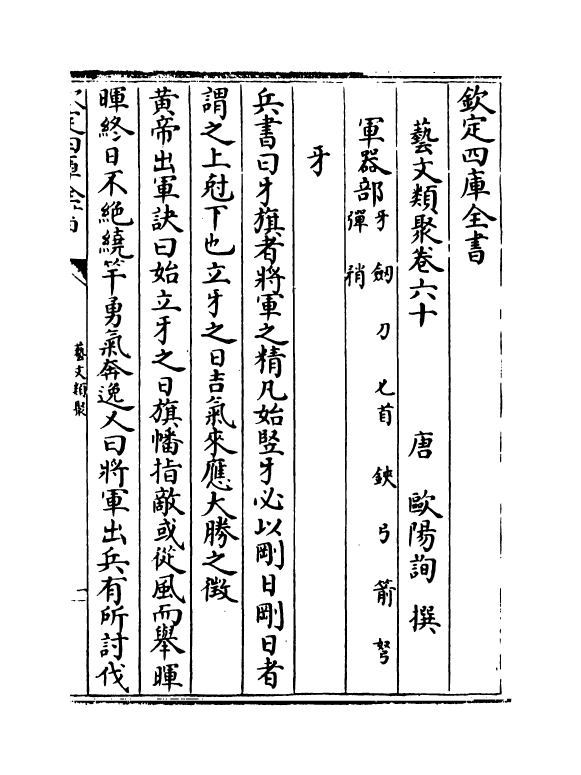 欽定四庫全書
藝文類聚卷六十
唐　歐陽詢　撰
軍器部牙　劒　刀　匕首　鋏　弓　箭　弩
彈　矟
牙
兵書曰牙旗者將軍之精凡始豎牙必以剛日剛日者
謂之上尅下也立牙之日吉氣來應大勝之徴
黄帝出軍訣曰始立牙之日旗幡指敵或從風而舉暉
暉終日不絶繞竿勇氣奔逸又曰將軍出兵有所討伐
藝文類聚